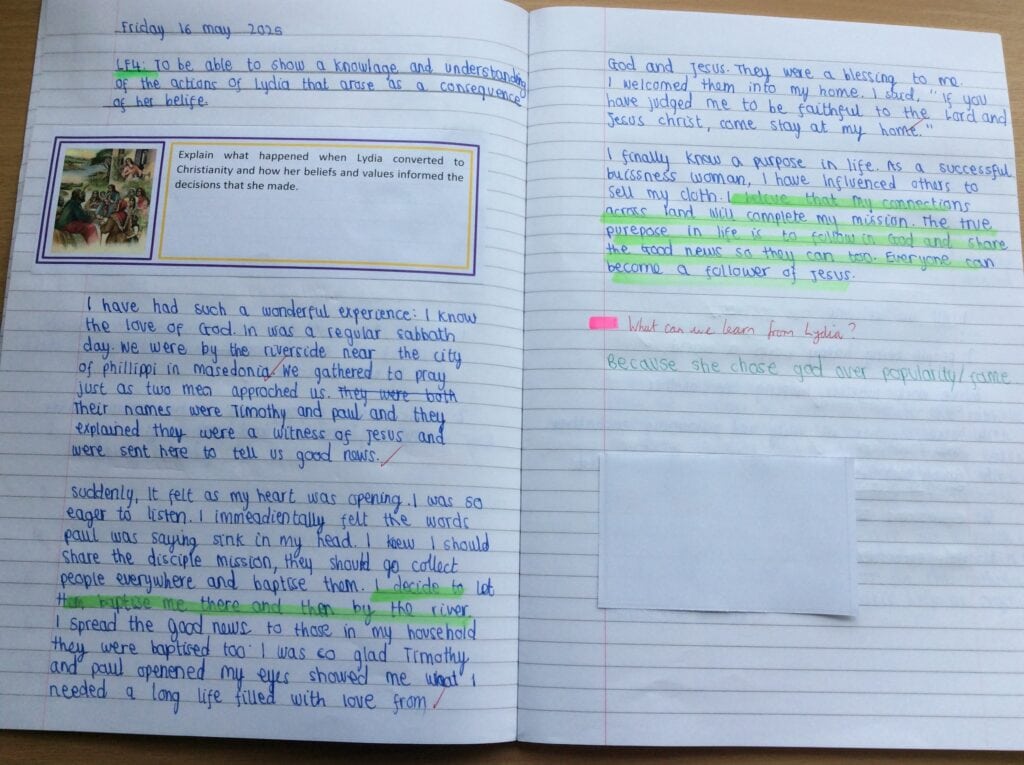 Friday 16 may 2025
LF4: To be able to show a knowlage and understanding
of the actions of Lydia that arose as a consequence
of her belife.
Explain what happened when Lydia converted to
Christianity and how her beliefs and values informed the
decisions that she made.
I have had such a wonderful experience: I know
the love of God. In was a regular sabbath
day. We were by the riverside near the city
of phillippi in masedonia. We gathered to pray
just as two men approched us. They were both
Their names were Timothy and paul and they
explained they were a witness of jesus and
were sent here to tell us good news.
suddenly, it felt as my heart was opening. I was so
eager to listen. I immeadientally felt the words
paul was saying sink in my head. I knew I should
share the disciple mission, they should go collect
people everywhere and baptise them. I decide to let
them baptise me there and then by the river.
I spread the good news to those in my household
they were baptised too. I was so glad Timothy
and paul openened my eyes showed me what I
needed a long life filled with love from
God and Jesus. They were a blessing to me.
I welcomed them into my home. I said, "If you
have judged me to be faithful to the Lord and
Jesus christ, come stay at my home."
I finally know a purpose in life. As a successful
buissness woman, I have influenced others to
sell my cloth. I beleve that my connections
across land will complete my mission. The true
purepose in life is to follow in God and share
the Good news so they can too. Everyone can
become a follower of Jesus.
What can we learn from Lydia?
Because she chose god over popularity/fame